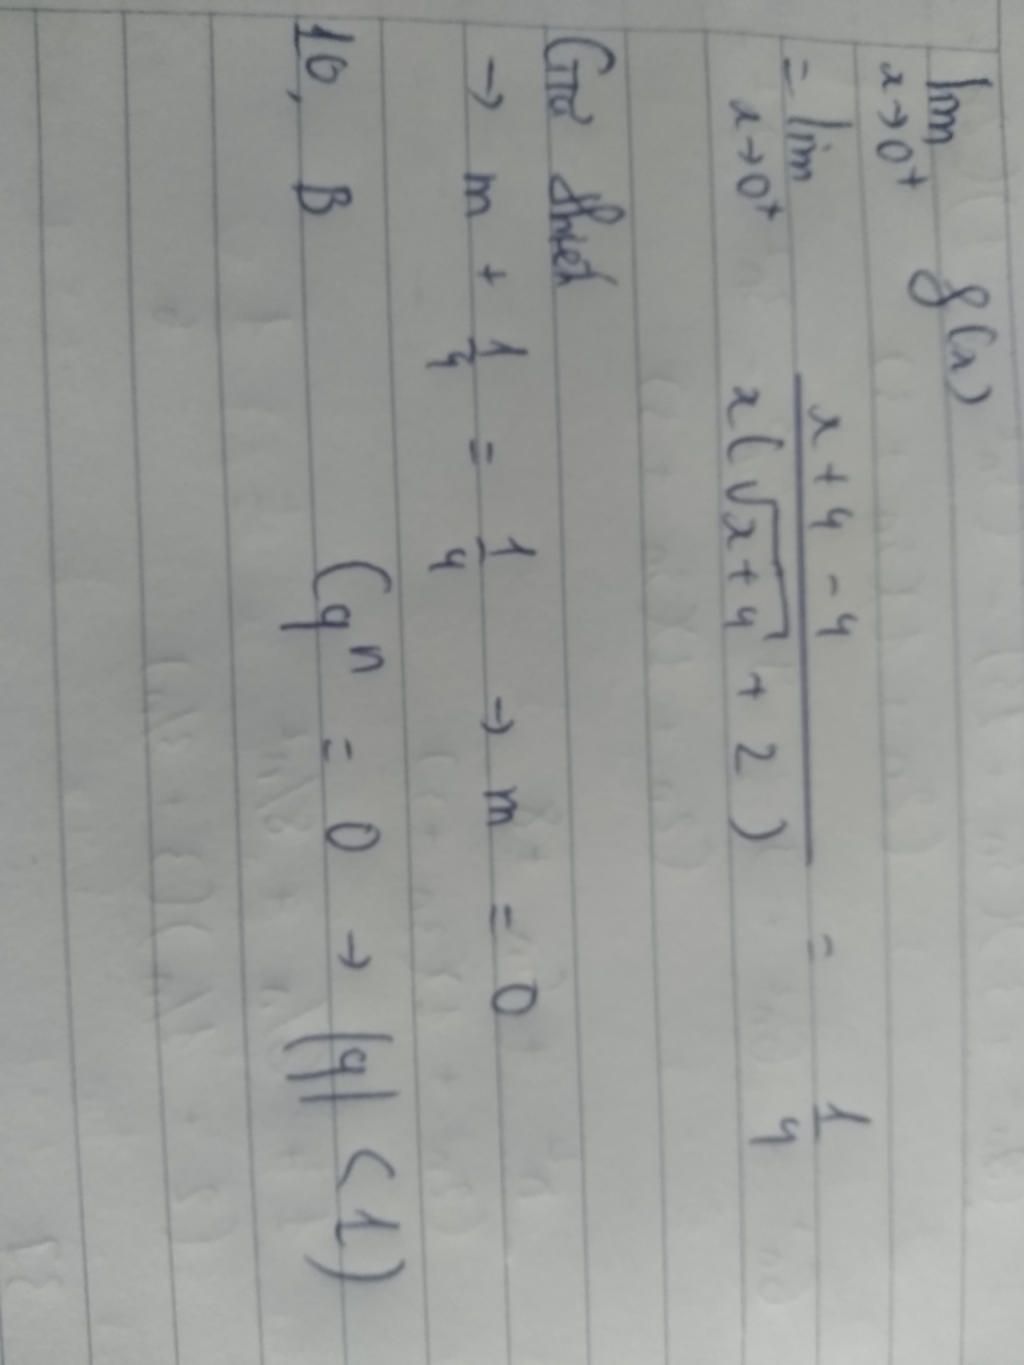 lim f(x)
x→0⁺
= lim x + 4 - 4 / x(√x+4 + 2) = 1/4
x→0⁺
Giả thiết
→ m + 1/4 = 1/4 → m = 0
10, B (qⁿ = 0 → |q| < 1)